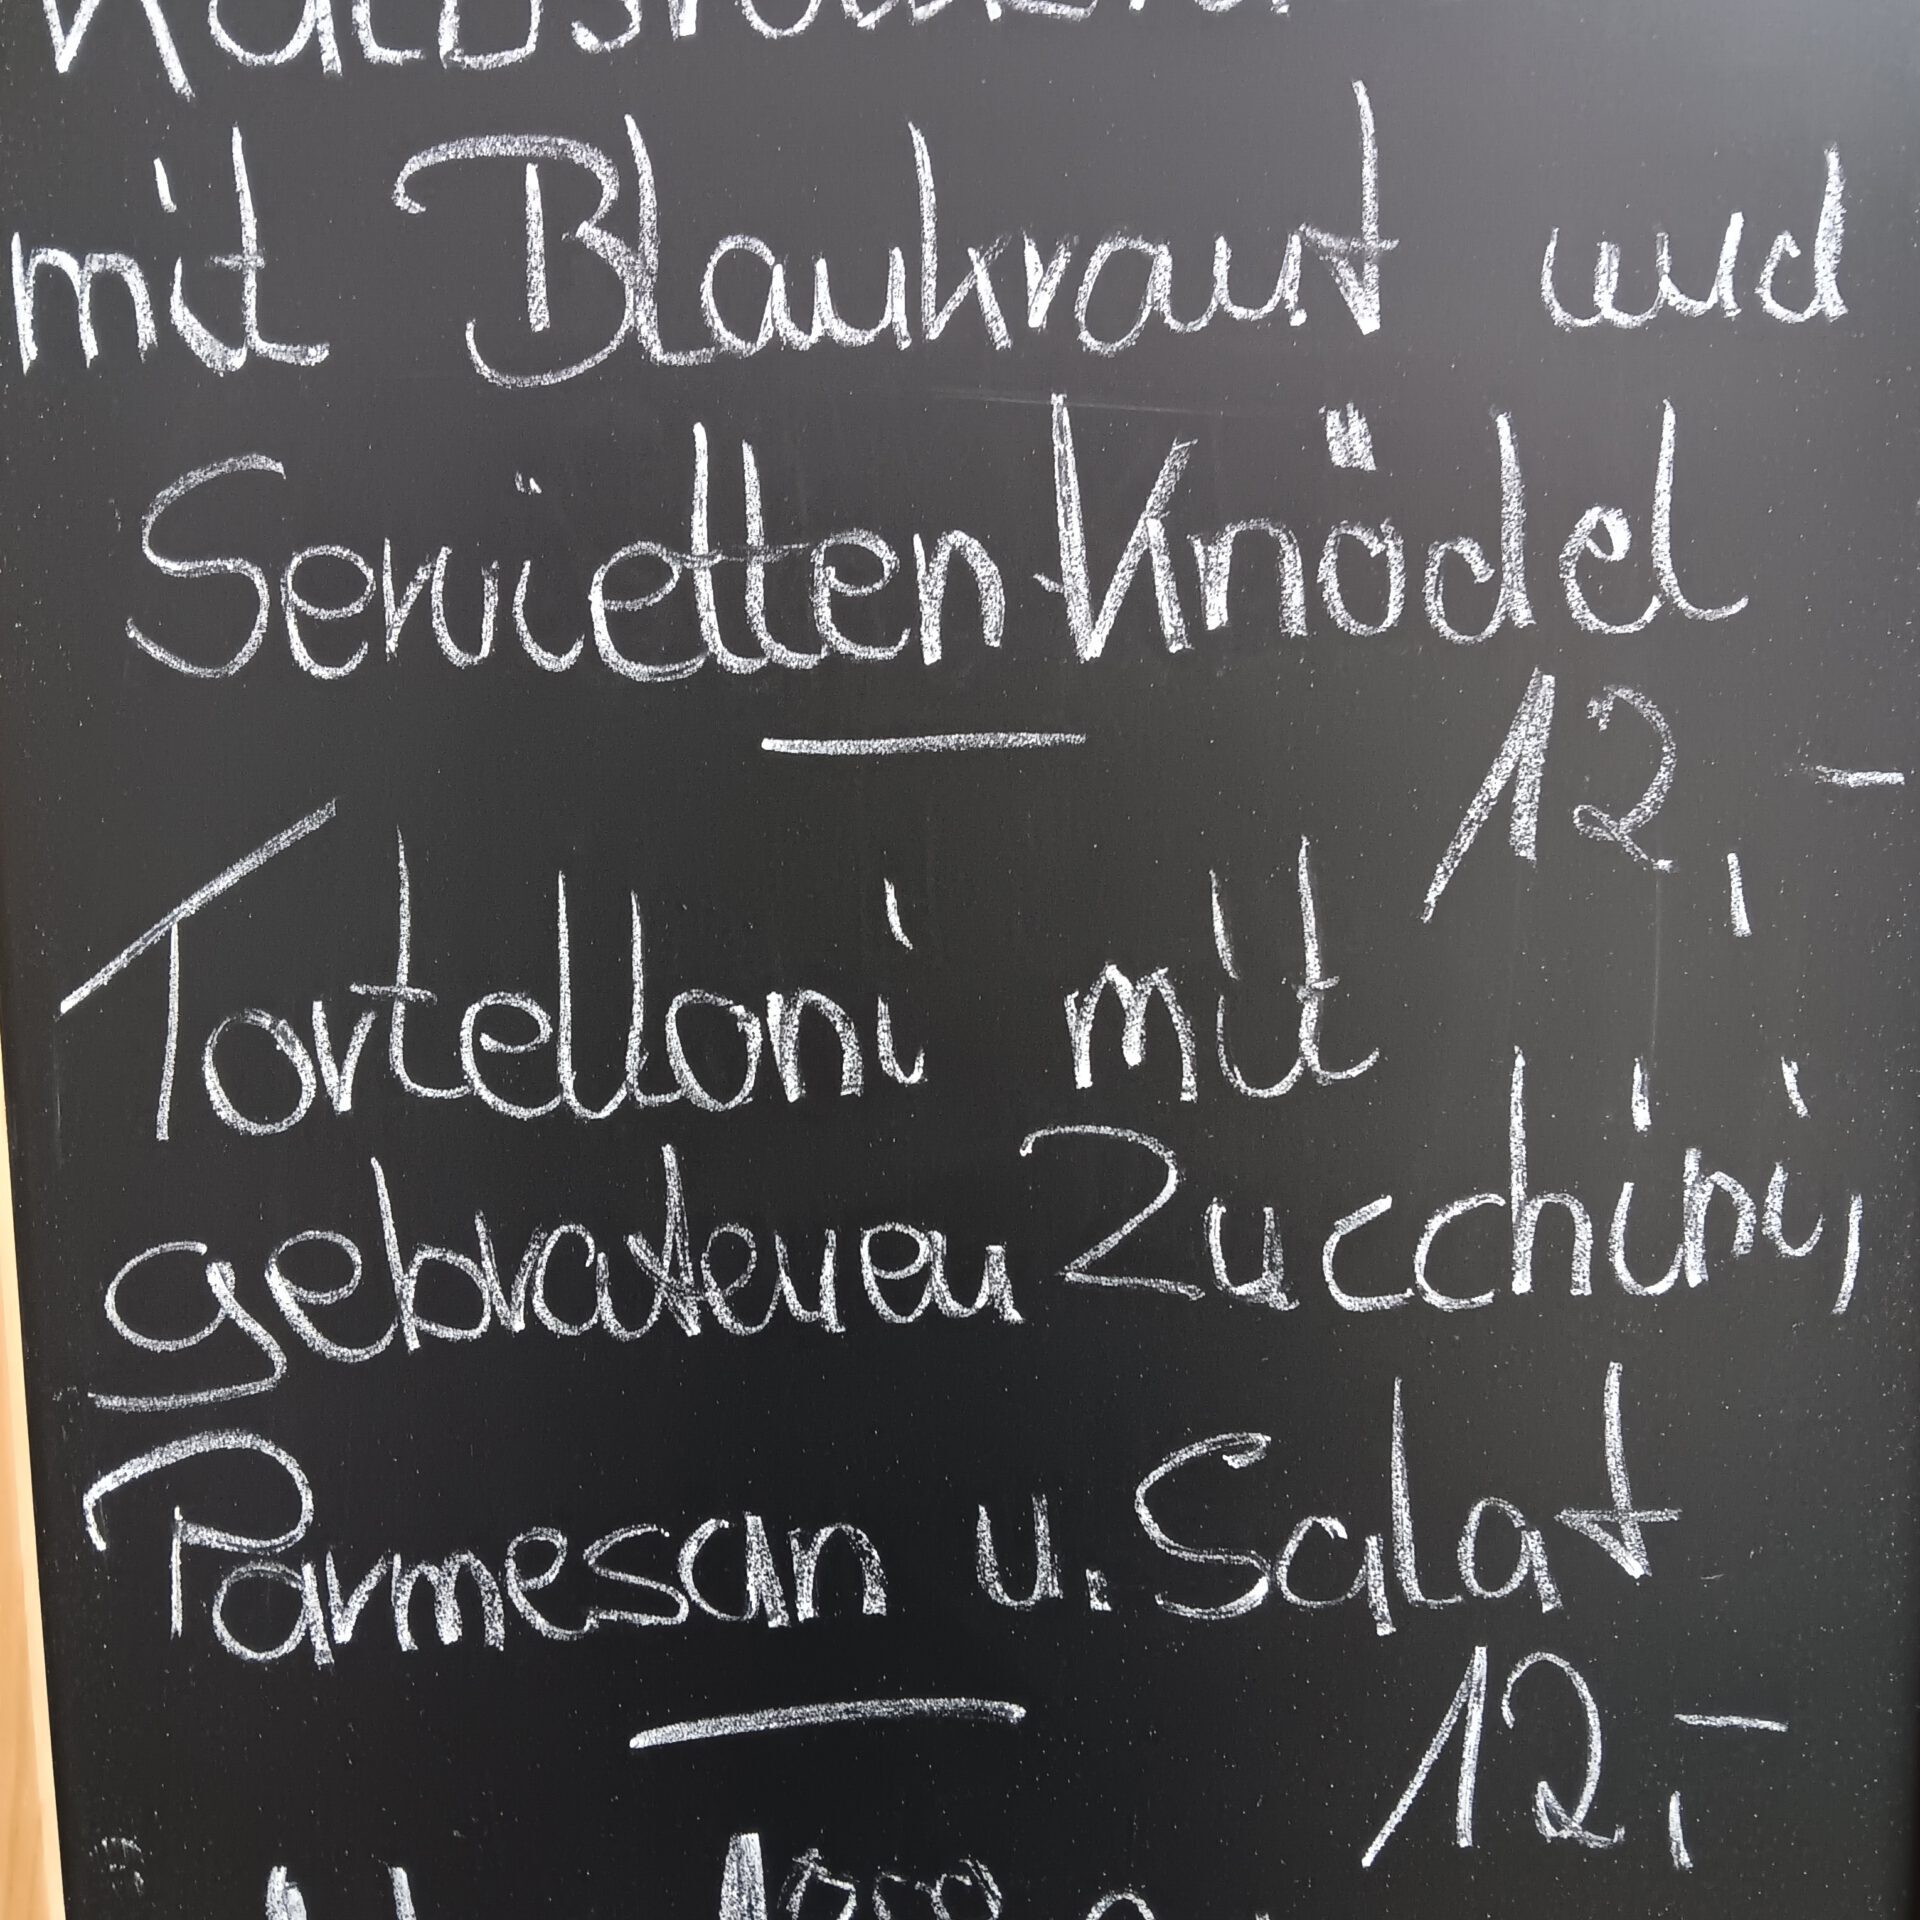 mit Blaukraut und
Servietten-Knödel
12,-
Tortelloni mit
gebratenen Zucchini,
Parmesan u. Salat
12,-